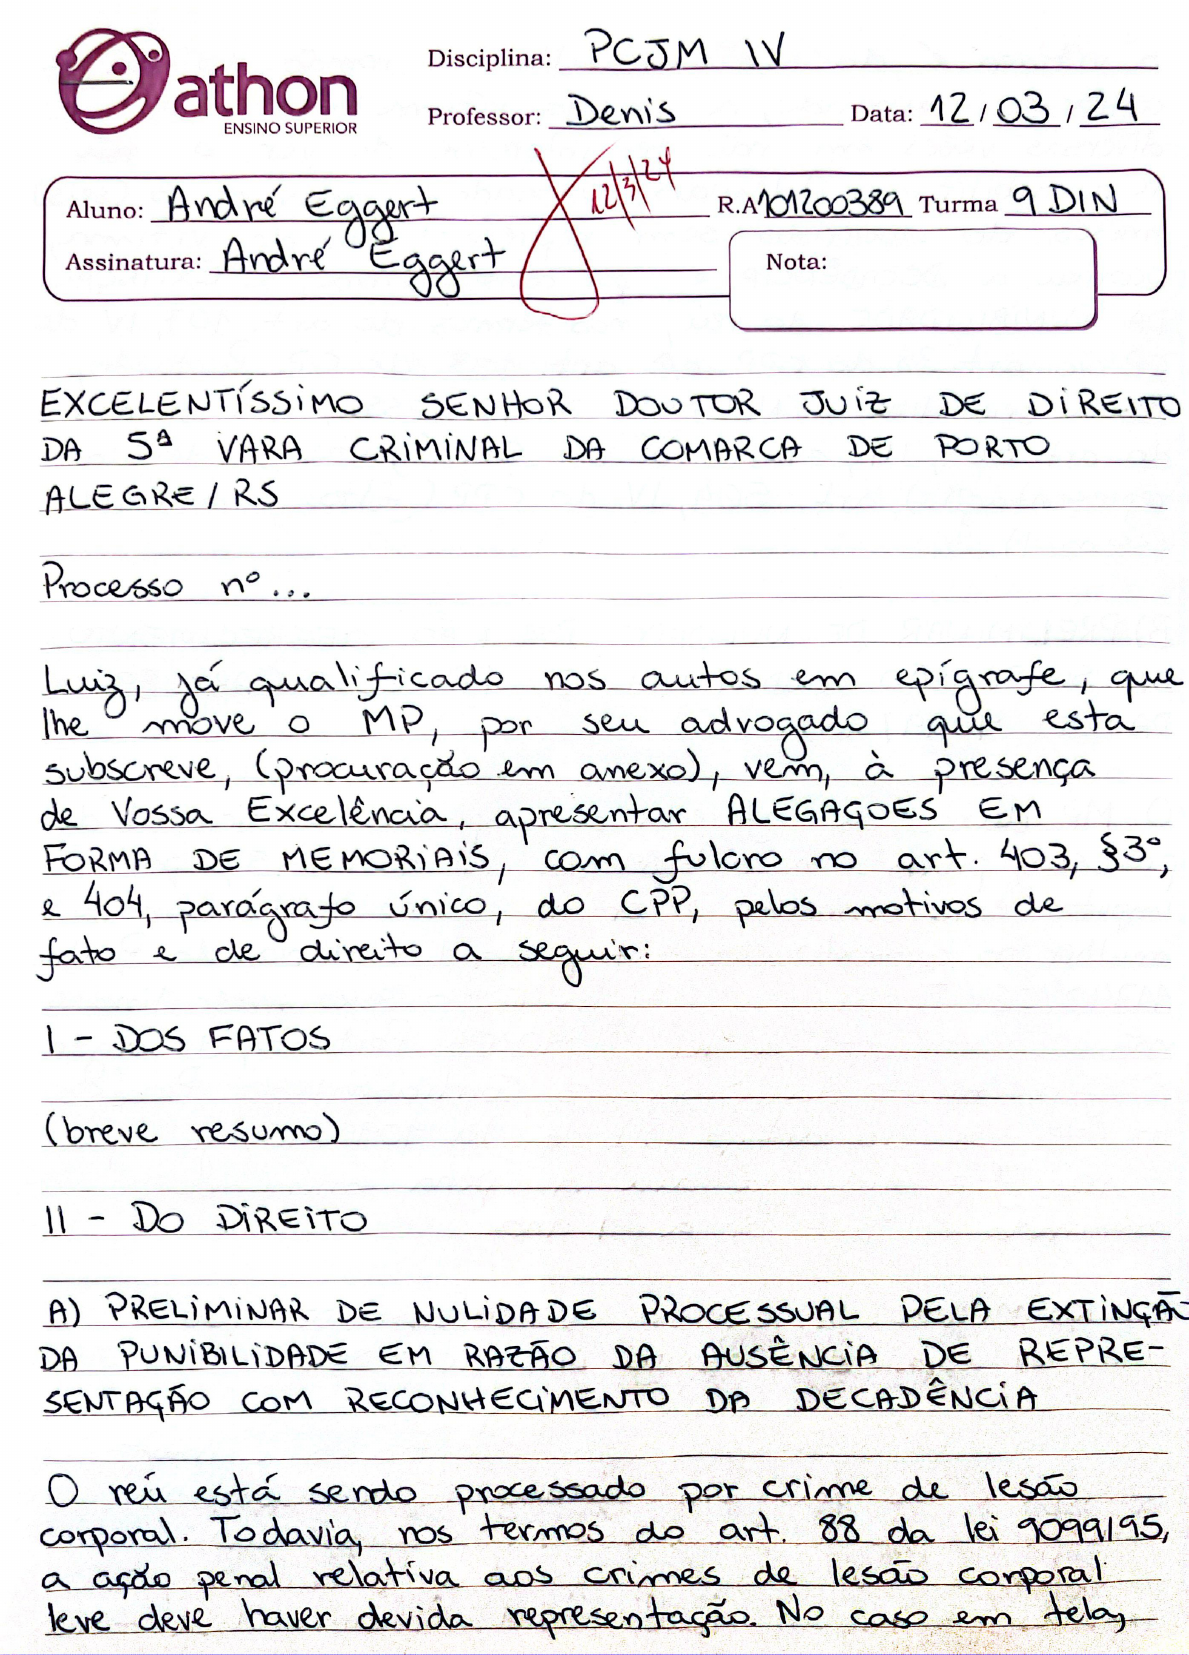 athon
ENSINO SUPERIOR
Disciplina: PCJM IV
Professor: Denis Data: 12/03/24
12/3/24
Aluno: André Eggert R.A 101200389 Turma 9 DIN
Assinatura: André Eggert Nota:
EXCELENTÍSSIMO SENHOR DOUTOR JUIZ DE DIREITO
DA 5ª VARA CRIMINAL DA COMARCA DE PORTO
ALEGRE/RS
Processo nº...
Luiz, já qualificado nos autos em epígrafe, que
lhe move o MP, por seu advogado que esta
subscreve, (procuração em anexo), vem, à presença
de Vossa Excelência, apresentar ALEGAÇOES EM
FORMA DE MEMORIAIS, com fulcro no art. 403, §3º,
e 404, parágrafo único, do CPP, pelos motivos de
fato e de direito a seguir:
I - DOS FATOS
(breve resumo)
II - DO DIREITO
A) PRELIMINAR DE NULIDADE PROCESSUAL PELA EXTINÇÃO
DA PUNIBILIDADE EM RAZÃO DA AUSÊNCIA DE REPRE-
SENTAÇÃO COM RECONHECIMENTO DA DECADÊNCIA
O réu está sendo processado por crime de lesão
corporal. Todavia, nos termos do art. 88 da lei 9099/95,
a ação penal relativa aos crimes de lesão corporal
leve deve haver devida representação. No caso em tela,